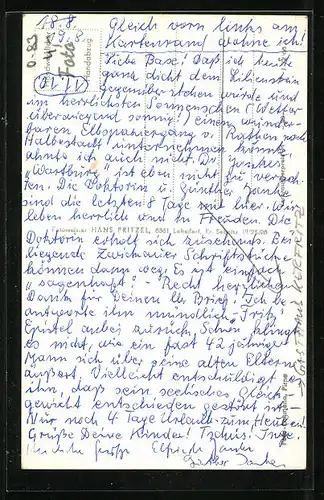 18.8.
19.8.
Foto
Handabzug
0.83
Gleich vorn links am
Kartenrand wohne ich!
Liebe Base! Daß ich heute
ganz dicht dem Lilienstein
gegenübersitzen würde und
im herrlichsten Sonnenschein (Wetter
überwiegend sonnig!) einen wunder-
baren Elbspaziergang v. Rathen nach
Halbestadt unternehmen könnte
ahnte ich auch nicht. Dr.
"Wartburg" ist eben nicht zu verach-
ten. Die Doktorin u. Günther
sind die letzten 8 Tage mit hier. Wir
leben herrlich und in Freuden. Die
Fotoverleger HANS PRITZEL, 8351 Lohsdorf, Kr. Sebnitz
Doktorin erholt sich zusehends. Bei-
liegende Zwickauer Schriftstücke
können dann weg. Es ist einfach
"sagenhaft" - Recht herzlichen
Dank für Deinen lb. Brief! Ich be-
antworte ihn mündlich - Fritz'
Epistel anbei zurück. Schön klingt
es nicht, wie ein fast 42 jähriger
Mann sich über seine alten Eltern
äußert. Vielleicht entschuldigt
ihn, daß sein seelisches Gleich-
gewicht entschieden gestört ist.
Nur noch 4 Tage Urlaub - zum Heulen!
Grüße Deine Kinder! Tschüs! Inge.
Herzliche Grüße Elfriede